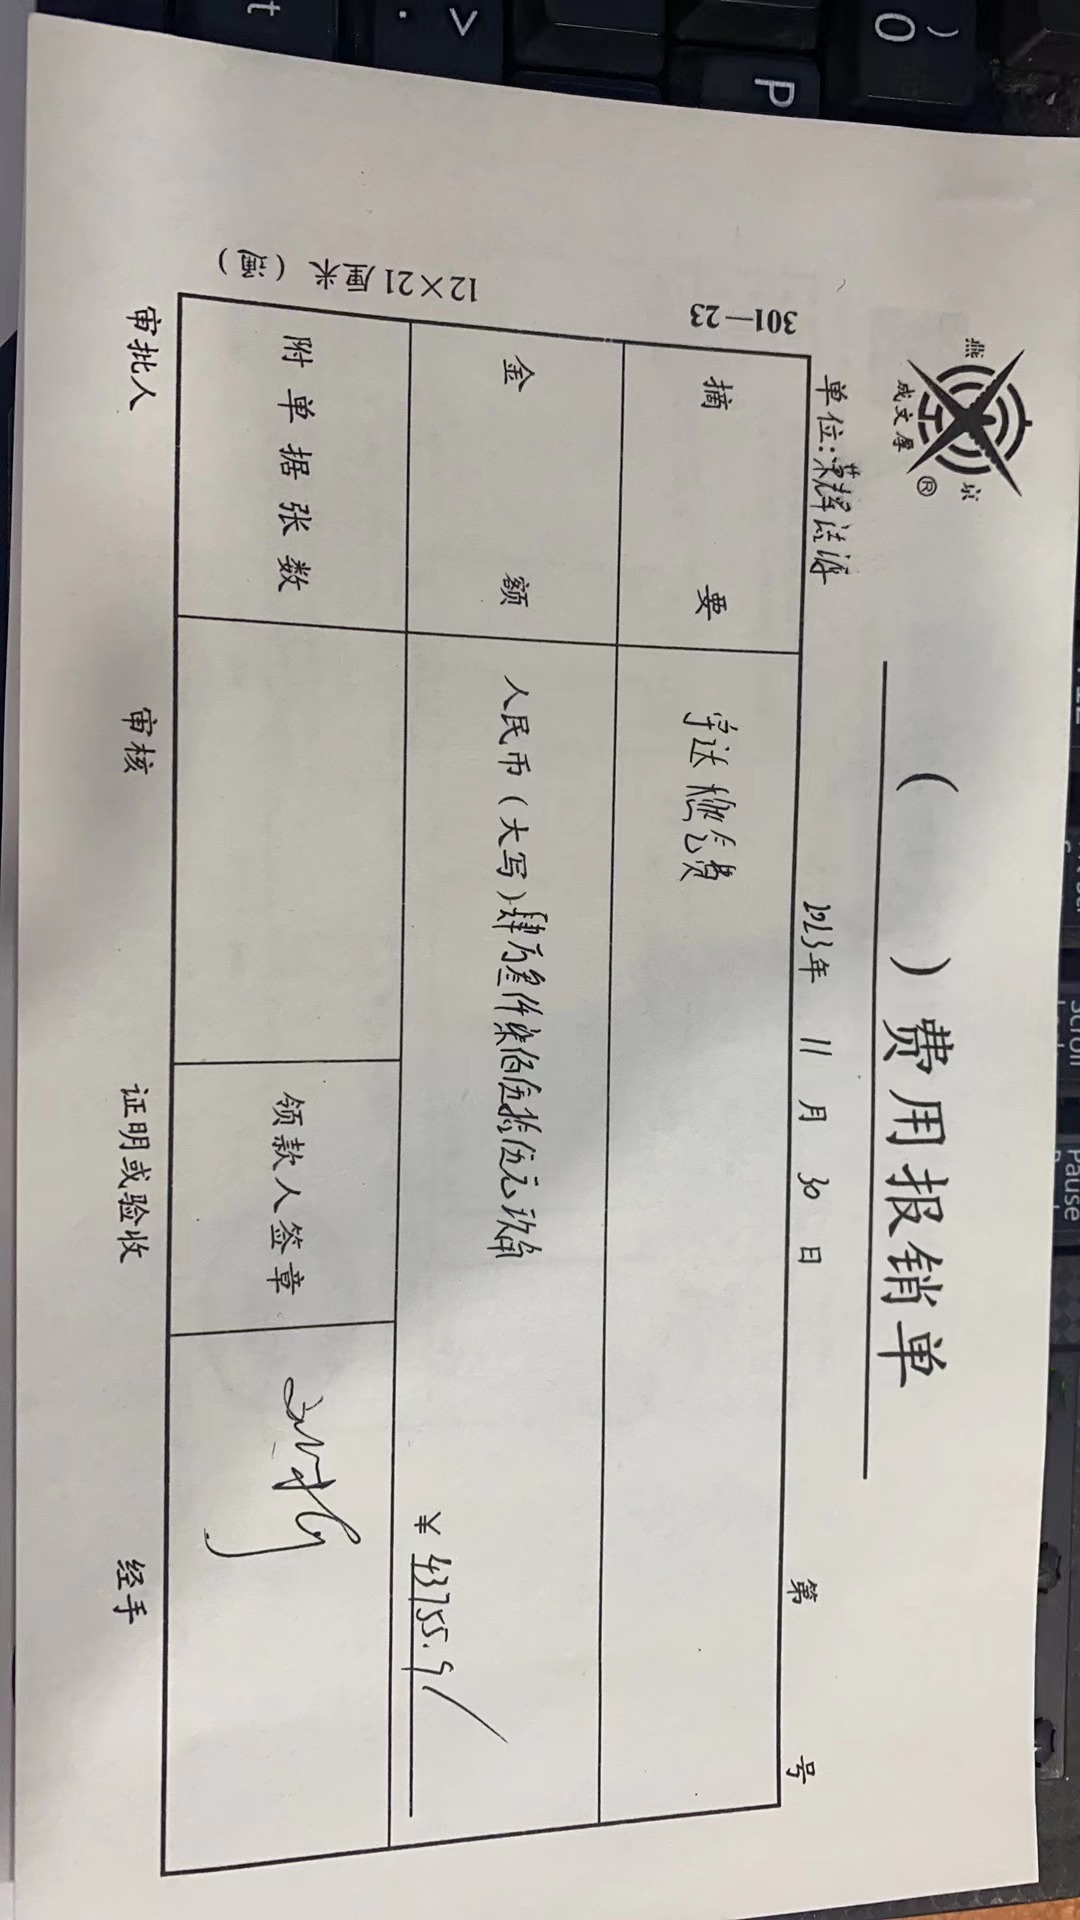 燕京
成文厚®
（ ）费用报销单
单位:荣辉洁源 2023年 11 月 30 日 第 号
301—23
12×21厘米（通）
摘 要
宇达燃气费
金 额
人民币（大写）肆万叁仟柒佰伍拾伍元玖角
¥ 43755.9/
附 单 据 张 数
领款人签章
审批人 审核 证明或验收 经手
t
>
.
)
0
P
Scroll
Pause